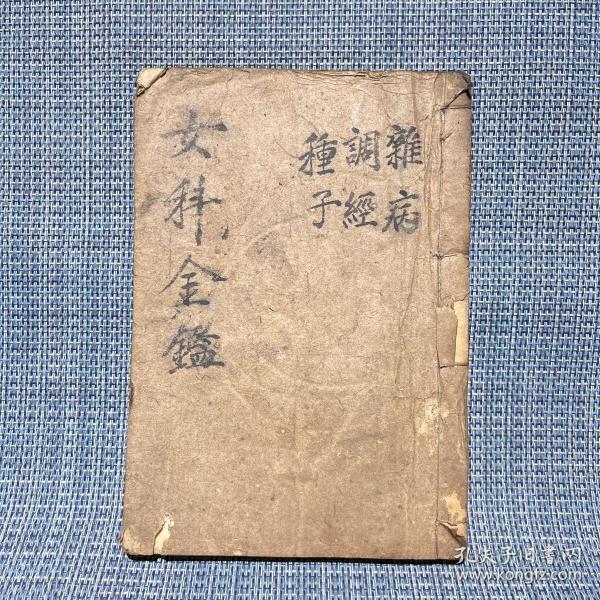 雜病
調經
種子
女科金鑑
孔夫子旧书网
www.kongfz.com